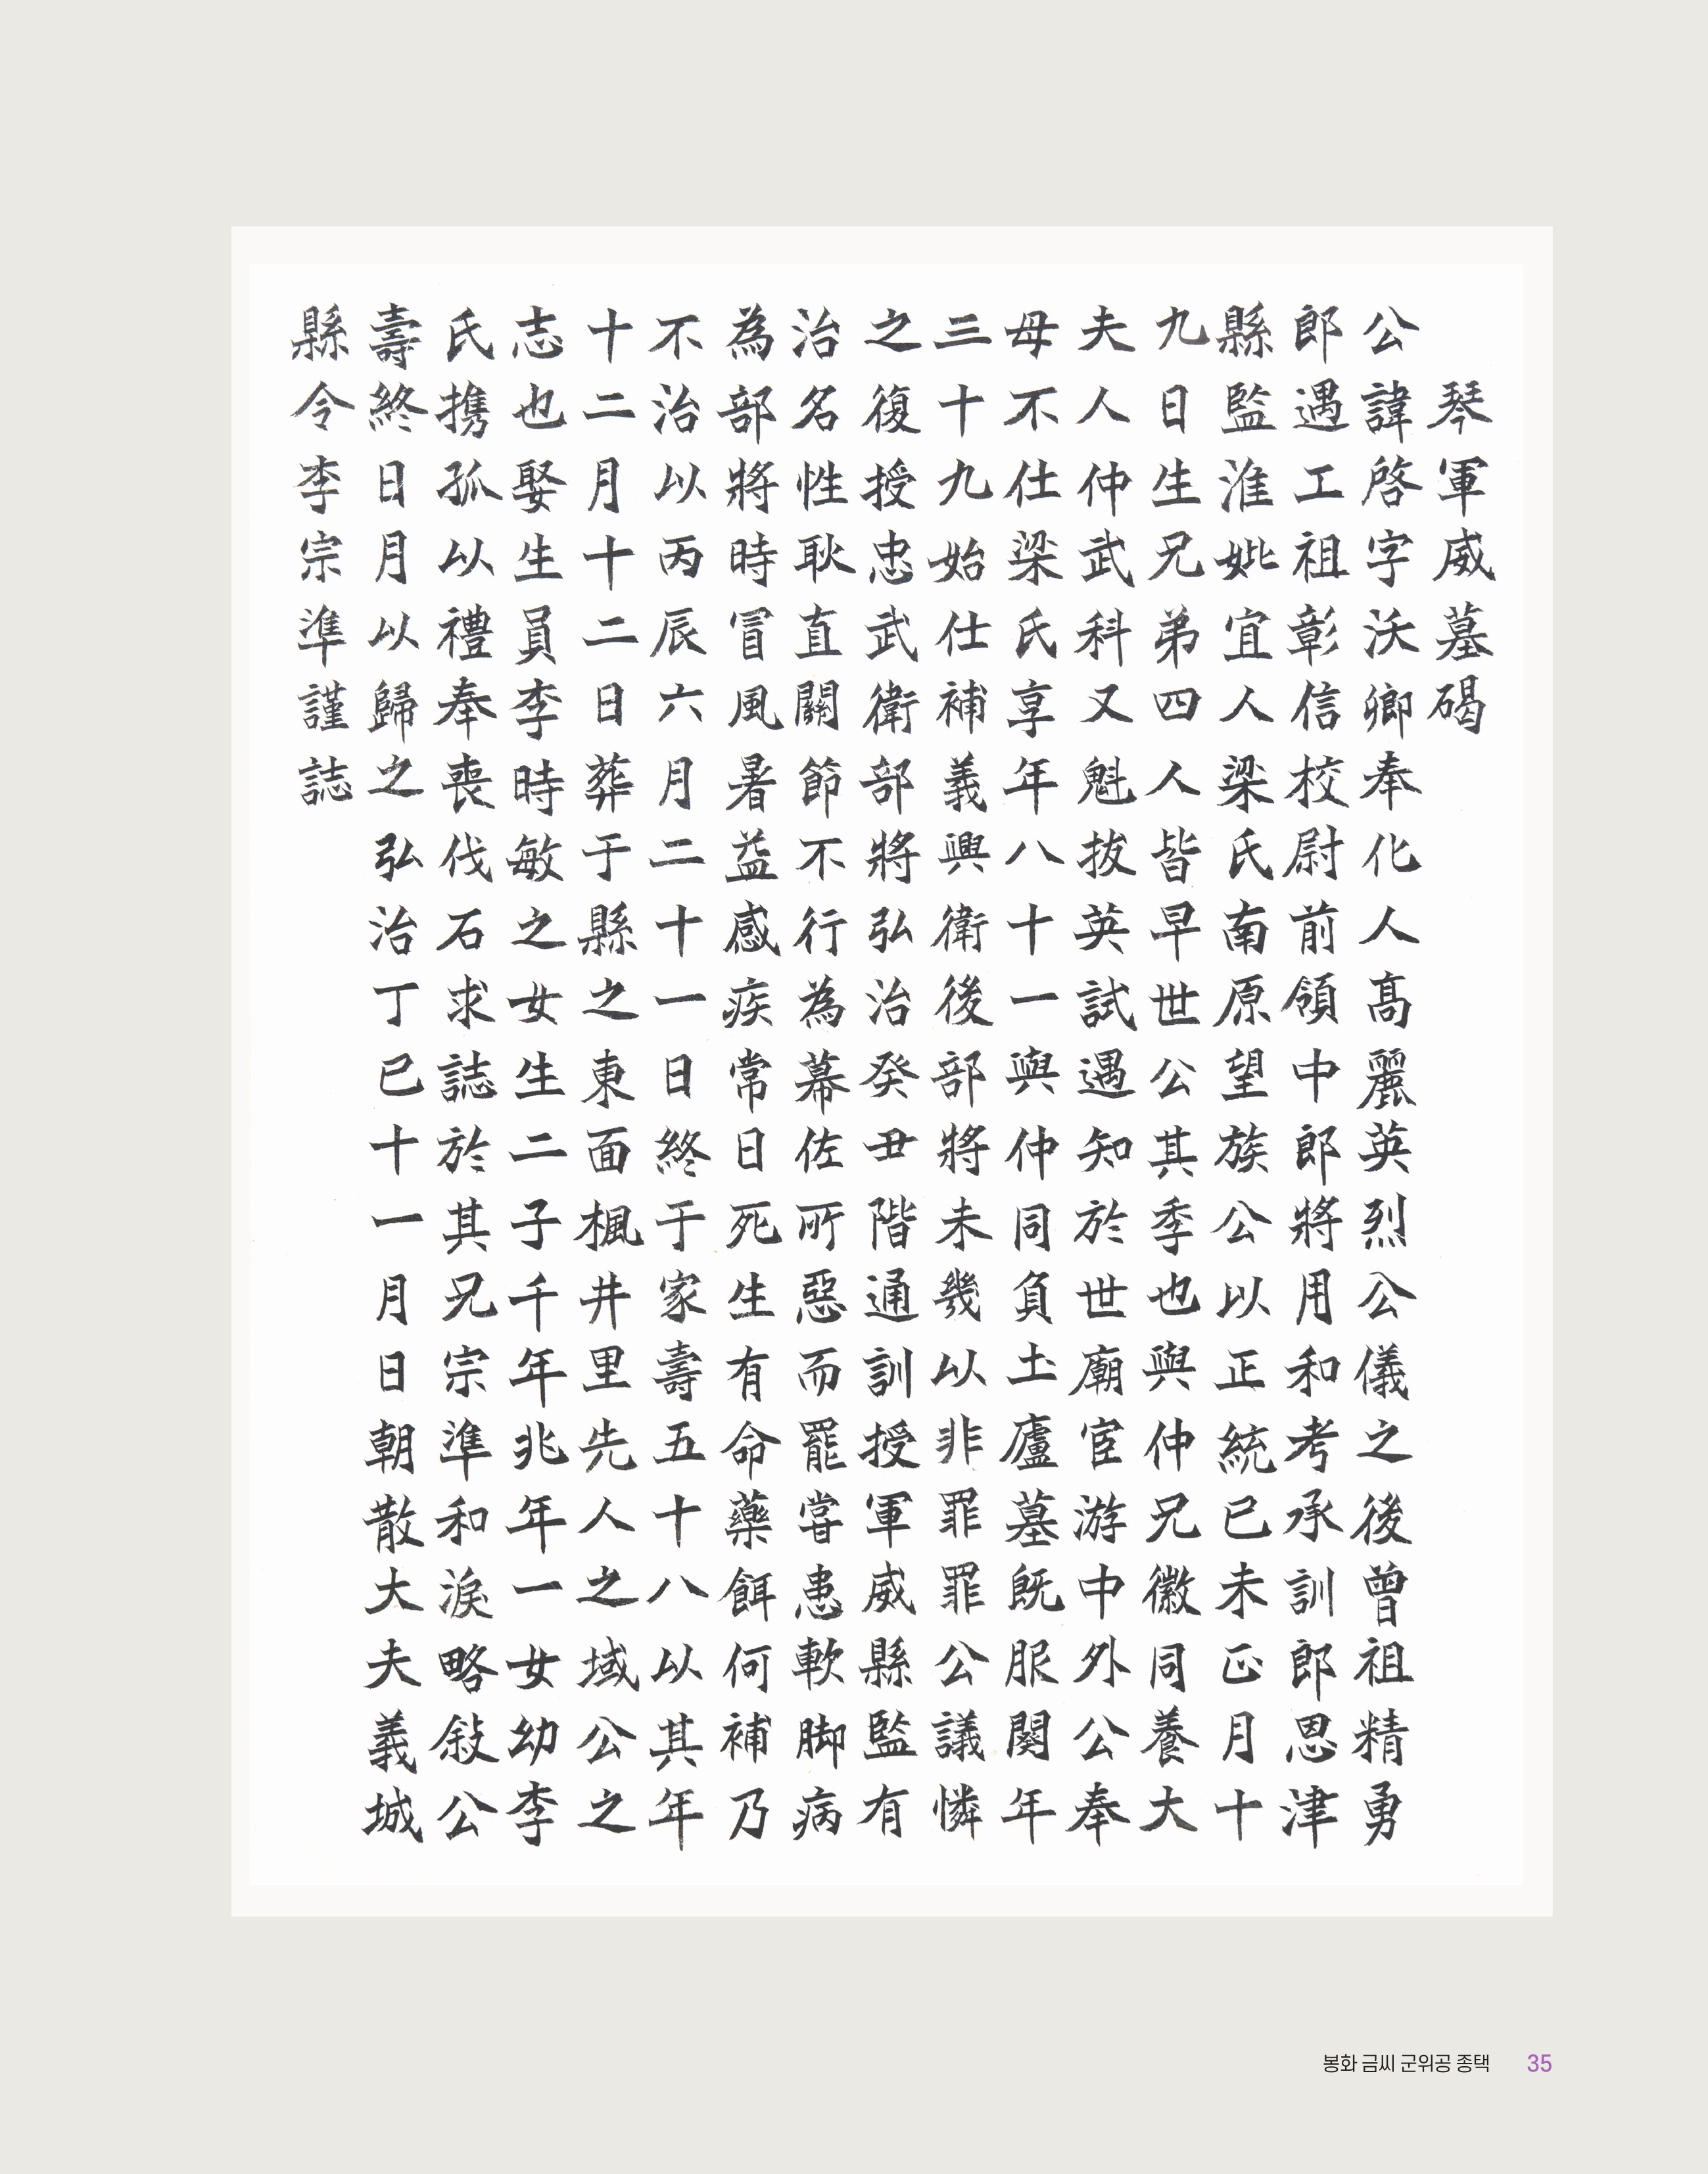 琴軍威墓碣
公諱啓字沃卿奉化人髙麗英烈公儀之後曾祖精勇
郎遇工祖彰信校尉前領中郎將用和考承訓郎思津
縣監淮妣宜人梁氏南原望族公以正統已未正月十
九日生兄弟四人皆早世公其季也與仲兄徽同養大
夫人仲武科又魁拔英試遇知於世廟宦游中外公奉
母不仕梁氏享年八十一與仲同負土廬墓既服闋年
三十九始仕補義興衛後部將未幾以非罪罪公議憐
之復授忠武衛部將弘治癸丑階通訓授軍威縣監有
治名性耿直關節不行為幕佐所惡而罷甞患軟脚病
為部將時冒風暑益感疾常日死生有命藥餌何補乃
不治以丙辰六月二十一日終于家壽五十八以其年
十二月十二日葬于縣之東面楓井里先人之域公之
志也娶生員李時敏之女生二子千年兆年一女幼李
氏携孤以禮奉喪伐石求誌於其兄宗準和淚略敍公
壽終日月以歸之 弘治丁巳十一月日朝散大夫義城
縣令李宗準謹誌
봉화 금씨 군위공 종택 35